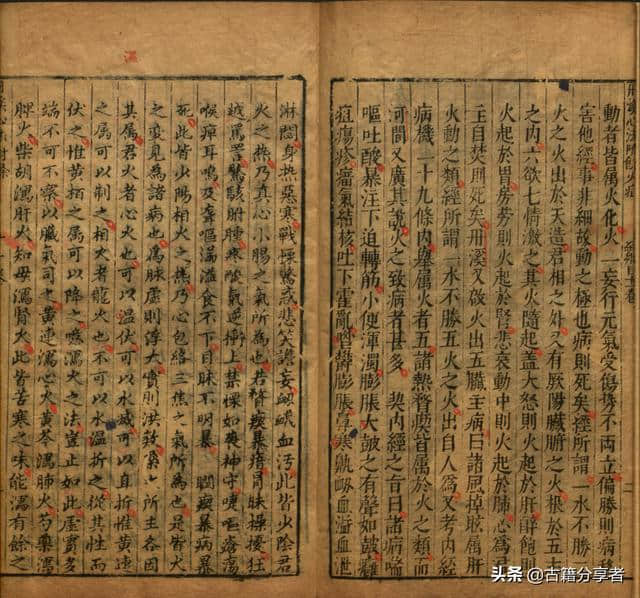 動者皆屬火化火一妄行元氣受傷勢不兩立偏勝則病
害他經事非細故動之極也病則死矣經所謂一水不勝
火之火出於天造君相之外又有厥陽臟腑之火根於五
之内六欲七情激之其火隨起蓋大怒則火起於肝醉飽
火起於胃房勞則火起於腎悲哀動中則火起於肺心為
主自焚則死矣丹溪又啟火出五臟主病曰諸風掉眩屬肝
動經所謂一水不勝五火之火出自人為又考内經
病機一十九條内舉屬火者五諸熱瞀瘛皆屬於火之類
河間又廣其說火之致病者甚多 契内經之旨曰諸病喘
嘔吐酸暴注下迫轉筋小便渾濁膨脹大鼓之有聲如鼓癰
疽瘍疹瘤氣結核吐下霍亂瞀鬱膨脹鼻窒鼽衄血溢血泄
淋閟身熱惡寒戰慄驚惑悲笑譫妄衄衊血汚此皆少陰君
火之熱乃真心小腸之氣所為也若瞀瘛暴瘖冒昧躁擾狂
越罵詈驚駭胕腫疼酸氣逆衝上禁慄如喪神守嚏嘔瘡瘍
喉痺耳鳴及聾嘔湧溢食不下目昧不明暴 瞤瘛暴病暴
死此皆少陽相火之熱乃心包絡三焦之氣所為也是皆火
之變見為諸病也為脉虛則浮大實則洪數藥之所主各因
其屬君火者心火也可以濕伏可以水滅可以直折惟黃連
之屬可以制之相火者龍火也不可以水濕折之從其性而
伏之惟黃栢之屬可以降之噫瀉火之法豈止如此虛實多
端不可不察以臟氣司之黃連瀉心火黃芩瀉肺火芍藥瀉
脾火柴胡瀉肝火知母瀉腎火此皆苦寒之味能瀉有餘之
头条 @古籍分享者